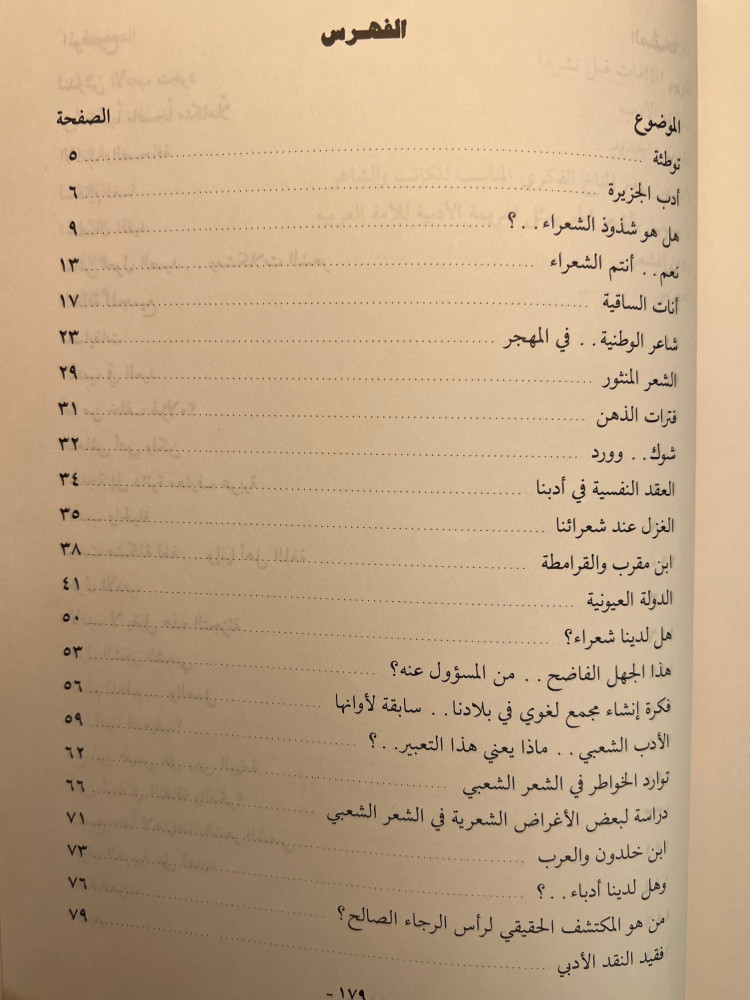 الفهرس
الموضوع الصفحة
توطئة ٥
أدب الجزيرة ٦
هل هو شذوذ الشعراء..؟ ٩
نعم.. أنتم الشعراء ١٣
أنات الساقية ١٧
شاعر الوطنية.. في المهجر ٢٣
الشعر المنثور ٢٩
فترات الذهن ٣١
شوك.. وورد ٣٢
العقد النفسية في أدبنا ٣٤
الغزل عند شعرائنا ٣٥
ابن مقرب والقرامطة ٣٨
الدولة العيونية ٤١
هل لدينا شعراء؟ ٥٠
هذا الجهل الفاضح.. من المسؤول عنه؟ ٥٣
فكرة إنشاء مجمع لغوي في بلادنا.. سابقة لأوانها ٥٦
الأدب الشعبي.. ماذا يعني هذا التعبير..؟ ٥٩
توارد الخواطر في الشعر الشعبي ٦٢
دراسة لبعض الأغراض الشعرية في الشعر الشعبي ٦٦
ابن خلدون والعرب ٧١
وهل لدينا أدباء..؟ ٧٣
من هو المكتشف الحقيقي لرأس الرجاء الصالح؟ ٧٦
فقيد النقد الأدبي ٧٩
- ١٧٩